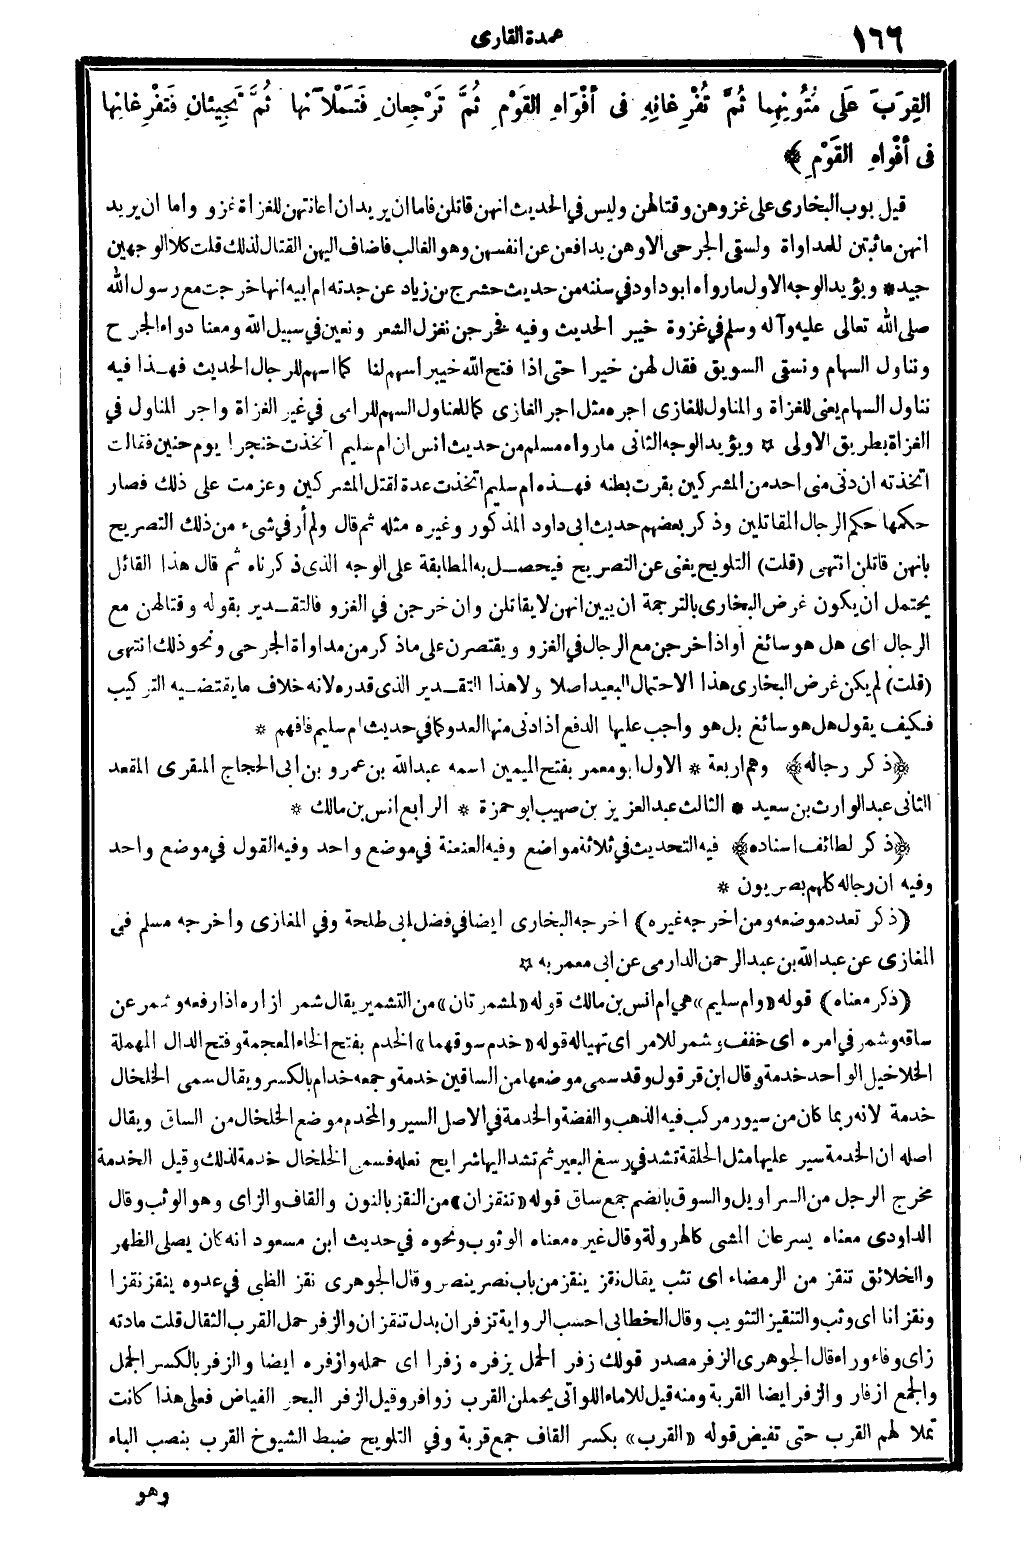 ١٦٦
عمدة القارى
القِرَبَ عَلَى مُتُونِهِما ثُمَّ تُفْرِغانِهِ فى أفْوَاهِ القَوْمِ ثُمَّ تَرْجِعانِ فَتَمْلَآنها ثُمَّ تَجِيئانِ فَتفْرِغانِها
فى أفْواهِ القَوْمِ ﴾
قيل بوب البخارى على غزوهن وقتالهن وليس في الحديث انهن قاتلن فاما ان يريد ان اعانتهن للغزاة غزو وأما ان يريد
انهن ماثبتن للمداواة ولسقى الجرحى الاوهن يدافعن عن انفسهن وهو الغالب فاضاف اليهن القتال لذلك قلت كلا الوجهين
جيد * ويؤيد الوجه الاول مارواه ابو داود في سننه من حديث حشرج بن زياد عن جدته ام ابيه انها خرجت مع رسول الله
صلى الله تعالى عليه وآله وسلم في غزوة خيبر الحديث وفيه فخرجن نغزل الشعر ونعين في سبيل الله ومعنا دواء الجرح
ونناول السهام ونسقى السويق فقال لهن خيرا حتى اذا فتح الله خيبر أسهم لنا كما اسهم للرجال الحديث فهـذا فيه
نناول السهام يعنى للغزاة والمناول للغازى اجره مثل اجر الغازى كما للمناول السهم للرامى في غير الغزاة واجر المناول في
الغزاة بطريق الاولى * ويؤيد الوجه الثانى مارواه مسلم من حديث انس ان ام سليم اتخذت خنجرا يوم حنين فقالت
اتخذته ان دنى منى احد من المشركين بقرت بطنه فهـذه ام سليم اتخذت عدة لقتل المشركين وعزمت على ذلك فصار
حكمها حكم الرجال المقاتلين وذكر بعضهم حديث ابى داود المذكور وغيره مثله ثم قال ولم أر في شىء من ذلك التصريح
بانهن قاتلن انتهى (قلت) التلويح يغنى عن التصريح فيحصـل به المطابقة على الوجه الذى ذكرناه ثم قال هذا القائل
يحتمل ان يكون غرض البخارى بالترجمة ان يبين انهن لايقاتلن وان خرجن في الغزو فالتقـدير بقوله وقتالهن مع
الرجال اى هل هو سائغ أو اذا خرجن مع الرجال في الغزو ويقتصرن على ماذكر من مداواة الجرحى ونحو ذلك انتهى
(قلت) لم يكن غرض البخارى هذا الاحتمال البعيد اصلا ولا هذا التقـدير الذى قدره لانه خلاف ما يقتضـيه التركيب
فـكيف يقول هل هو سائغ بل هو واجب عليها الدفع اذا دنى منها العدو كما في حديث ام سليم فافهم *
﴿ذكر رجاله﴾ وهم اربعة * الاول ابو معمر بفتح الميمين اسمه عبد الله بن عمرو بن ابى الحجاج المقرى المقعد
الثانى عبد الوارث بن سعيد * الثالث عبد العزيز بن صهيب ابو حمزة * الرابع انس بن مالك *
﴿ذكر لطائف اسناده﴾ فيه التحديث في ثلاثة مواضع وفيه العنعنة في موضع واحد وفيه القول في موضع واحد
وفيه ان رجاله كلهم بصريون *
(ذكر تعدد موضعه ومن اخرجه غيره) اخرجه البخارى ايضا في فضل ابى طلحة وفي المغازى وأخرجه مسلم في
المغازى عن عبد الله بن عبد الرحمن الدارمى عن ابى معمر به *
(ذكر معناه) قوله «وام سليم» هي ام انس بن مالك قوله «لمشمرتان» من التشمير يقال شمر ازاره اذا رفعه وشمر عن
ساقه وشمر في امره اى خفف وشمر للامر اى تهيا له قوله «خدم سوقهما» الخدم بفتح الخاء المعجمة وفتح الدال المهملة
الخلاخيل الواحد خدمة وقال ابن قرقول وقد سمى موضعها من الساقين خدمة وجمعه خدام بالكسر ويقال سمى الخلخال
خدمة لانه ربما كان من سيور مركب فيه الذهب والفضة والخدمة في الاصل السير والمخدم موضع الخلخال من الساق ويقال
اصله ان الخدمة سير عليها مثل الحلقة تشد في رسغ البعير ثم تشد اليها شرايح نعله فسمى الخلخال خدمة لذلك وقيل الخدمة
مخرج الرجل من السراويل والسوق بالضم جمع ساق قوله «تنقزان» من النقز بالنون والقاف والزاى وهو الوثب وقال
الداودى معناه يسرعان المشى كالهرولة وقال غيره معناه الوثوب ونحوه في حديث ابن مسعود انه كان يصلى الظهر
والخلائق تنقز من الرمضاء اى تثب يقال نقز ينقز من باب نصر ينصر وقال الجوهرى نقز الظبى في عدوه ينقز نقزا
ونقزانا اى وثب والتنقيز التثويب وقال الخطابى احسب الرواية تزفران بدل تنقزان والزفر حمل القرب الثقال قلت مادته
زاى وفاء وراء قال الجوهرى الزفر مصدر قولك زفر الحمل يزفره زفرا اى حمله وازفره ايضا والزفر بالكسر الحمل
والجمع ازفار والزفر ايضا القربة ومنه قيل للاماء اللواتى يحملن القرب زوافر وقيل الزفر البحر الفياض فعلى هذا كانت
تملا لهم القرب حتى تفيض قوله «القرب» بكسر القاف جمع قربة وفي التلويح ضبط الشيوخ القرب بنصب الباء
وهو